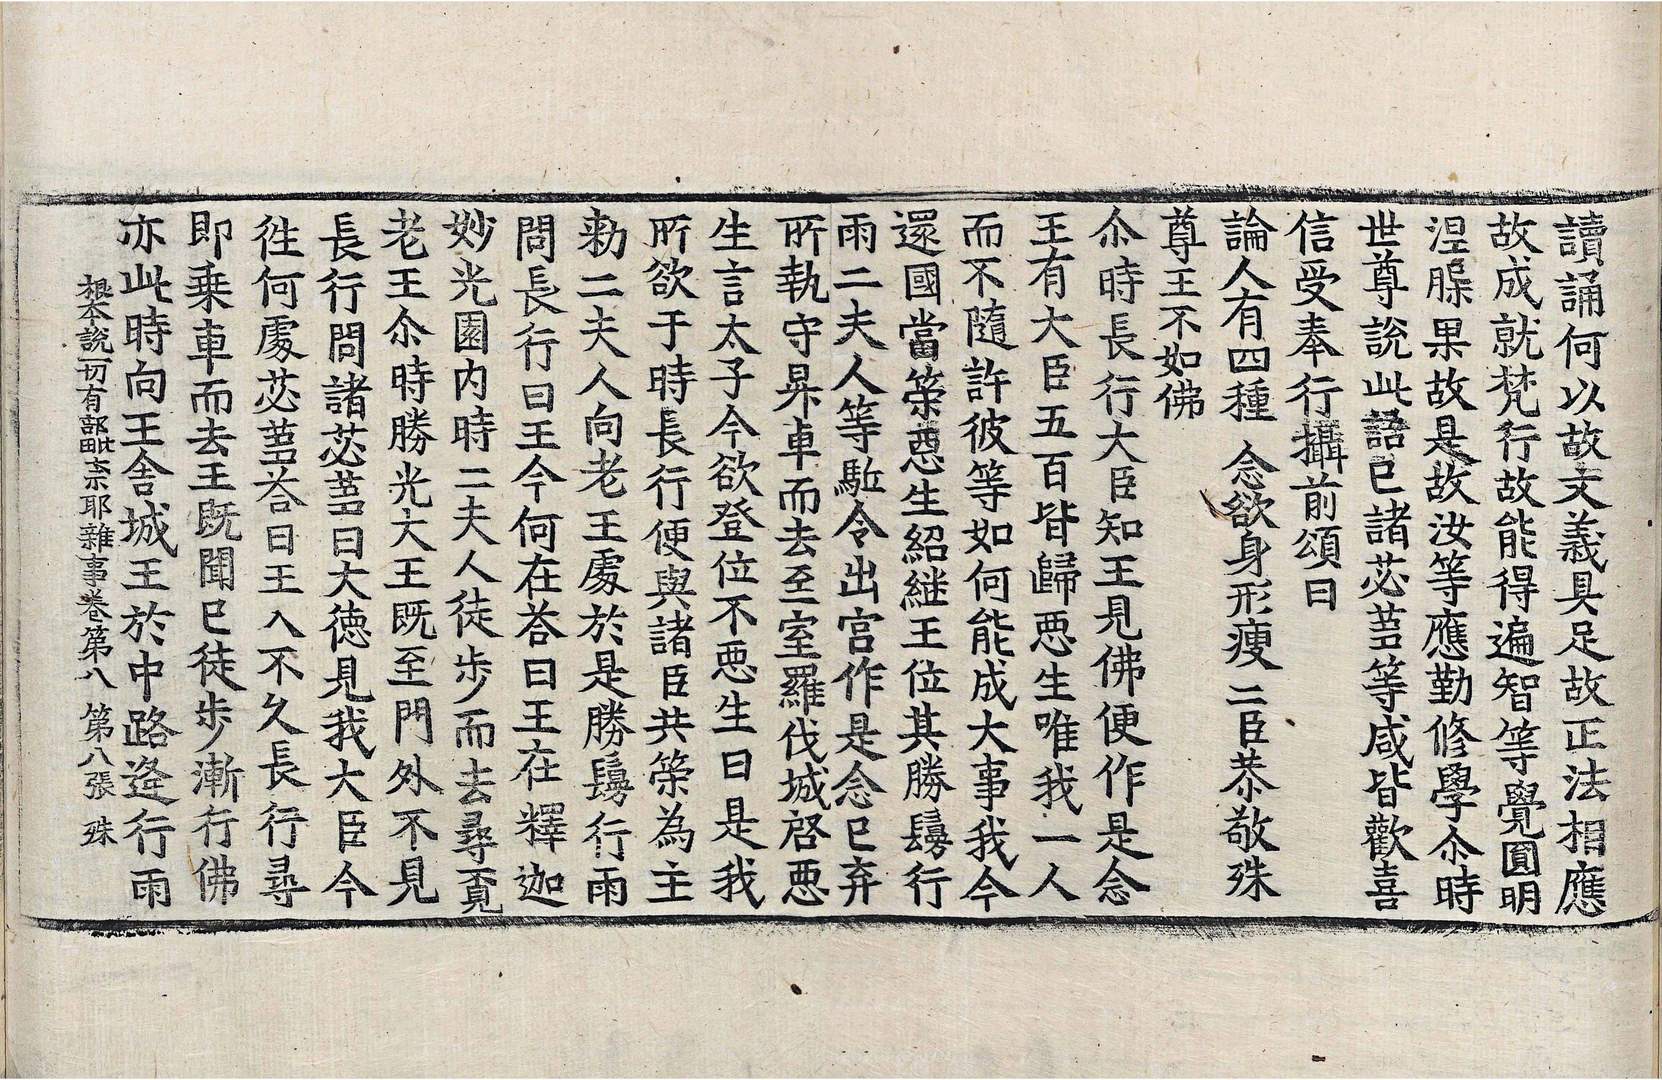 讀誦何以故文義具足故正法相應
故成就梵行故能得遍智等覺圓明
涅槃果故是故汝等應勤修學尒時
世尊說此語已諸苾蒭等咸皆歡喜
信受奉行攝前頌曰
論人有四種　念欲身形瘦　二臣恭敬殊
尊王不如佛
尒時長行大臣知王見佛便作是念
王有大臣五百皆歸惡生唯我一人
而不隨許彼等如何能成大事我今
還國當策惡生紹継王位其勝鬘行
雨二夫人等駈令出宮作是念已弃
所執守昇車而去至室羅伐城啓惡
生言太子今欲登位不惡生曰是我
所欲于時長行便與諸臣共策為主
勑二夫人向老王處於是勝鬘行雨
問長行曰王今何在荅曰王在釋迦
妙光園内時二夫人徒步而去尋覔
老王尒時勝光大王既至門外不見
長行問諸苾蒭曰大德見我大臣今
徃何處苾蒭荅曰王入不久長行尋
即乗車而去王既聞已徒步漸行佛
亦此時向王舍城王於中路逢行雨
根本說一切有部毗奈耶雜事卷第八　第八張　殊